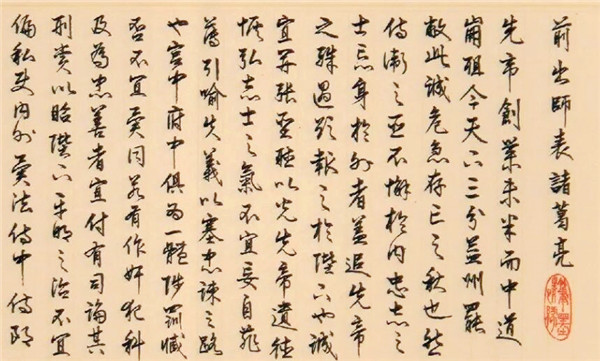 前出師表諸葛亮
先帝創業未半而中道
崩殂今天下三分益州罷
敝此誠危急存亡之秋也然
侍衛之臣不懈於內忠志之
士忘身於外者蓋追先帝
之殊遇欲報之於陛下也誠
宜開張聖聽以光先帝遺德
恢弘志士之氣不宜妄自菲
薄引喻失義以塞忠諫之路
也宮中府中俱為一體陟罰臧
否不宜異同若有作奸犯科
及為忠善者宜付有司論其
刑賞以昭陛下平明之治不宜
偏私使內外異法侍中侍郎